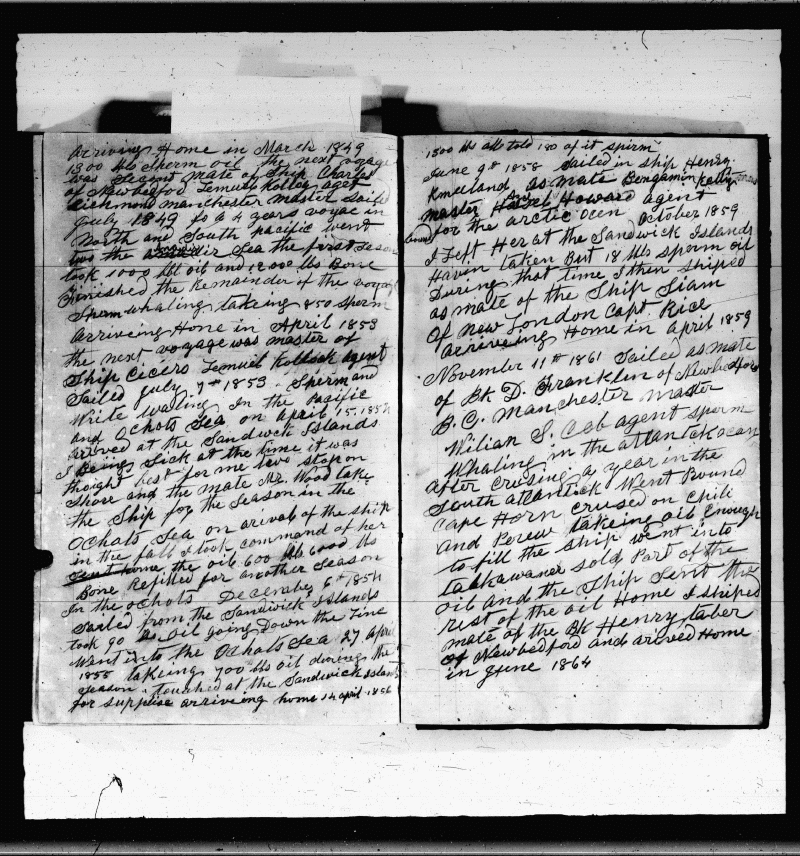 Arriving Home in March 1849
1300 bbs Sperm oil the next voyage
was Second mate of Ship Charles
of Newbedford Lemuel Kolley agent
Richmond manchester master Sailed
July 1849 fo a 4 years voyac in
North and South pacific went
two the Sea the first Season
took 1000 bbl oil and 12000 lbs Bone
Finished the Remainder of the voyag
Spermwhaling takeing 850 Sperm
Arriveing Home in April 1853
the next voyage was master of
Ship Cicero Lemuel Kollock agent
Sailed July 7th 1853 - Sperm and
Write waling In the Pacific
and Ochots Sea on April 15, 1854
arived at the Sandwick Islands
I Being Sick at the time it was
thought best for me two stop on
Shore and the mate Mr. Wood take
the Ship for the Season in the
Ochots Sea on arival of the ship
in the fall I took command of her
Sent home the oil 600 bbl 6000 lbs
Bone Refited for another Season
In the ochots December 6th 1854
Sailed from the Sandwick Islands
took 90 bbs oil going Down the Line
Went into the Ochots Sea 27 April
1855 takeing 700 bbs oil during the
season. touched at the Sandwick Islands
for surplise arriveing home 14 april 1856
1300 bbs all told 180 of it sperm
June 9th 1858 Sailed in ship Henry
Kneeland as mate Bengamin Kelley
master Howard agent
for the arctic Ocen October 1859
I Left Her at the Sandwick Islands
Haven taken But 18 bbs sperm oil
During that time I then shiped
as mate of the Ship Siam
Of New London Capt. Rice
arriveing Home in april 1859
November 11th 1861 Sailed as mate
of Bk D. Franklin of Newbedford
B. C. Manchester Master
Wilian S. Cob agent sperm
Whaling in the atlantck ocan
after crusing a year in the
South atlantick Went Round
Cape Horn crused on Chili
and Perew takeing oil Enough
to fill the ship went into
talkawaner sold Part of the
Oil and the Ship Sent the
rest of the oil Home I shiped
mate of the Bk Henry taber
Of Newbedford and arived Home
in June 1864